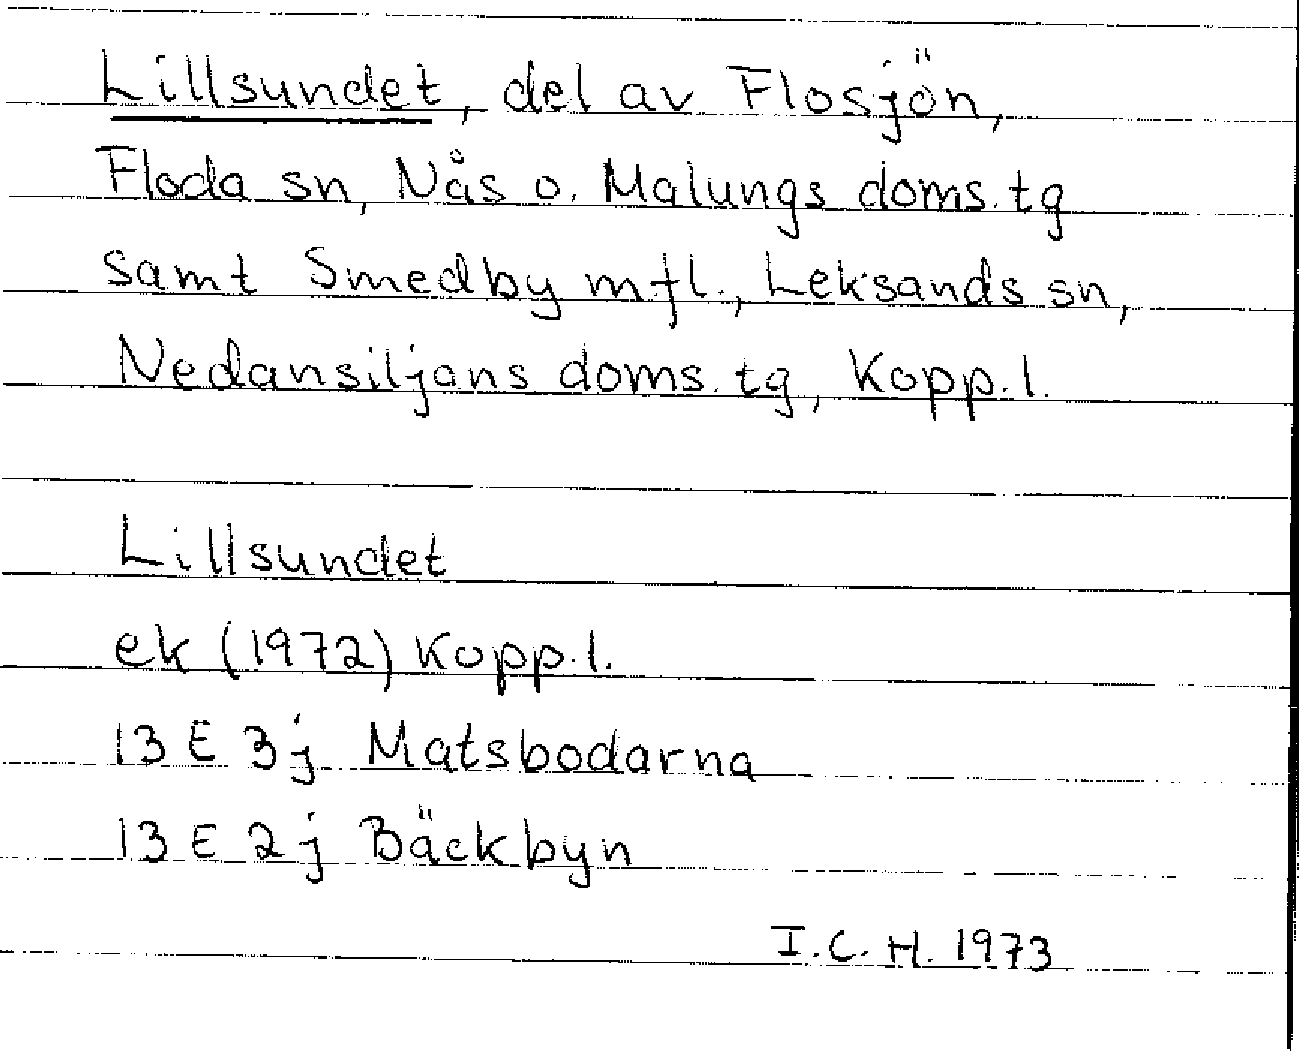 Lillsundet, del av Flosjön,
Floda sn, Nås o. Malungs doms. tg
samt Smedby mfl., Leksands sn,
Nedansiljans doms. tg, Kopp. l.
Lillsundet
ek (1972) Kopp. l.
13 E 3 j Matsbodarna
13 E 2 j Bäckbyn
I. C. H. 1973